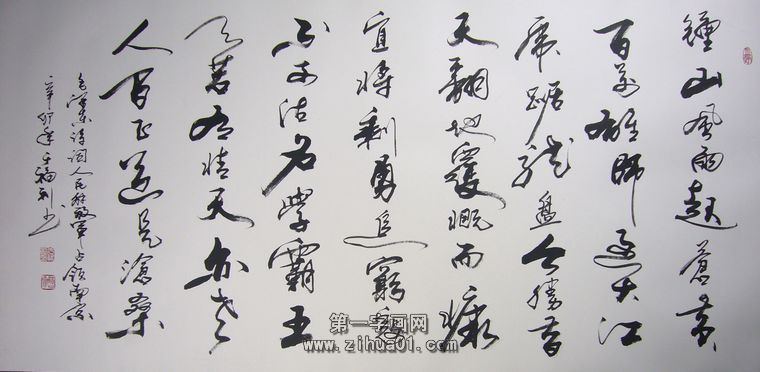 鐘山风雨起蒼黄
百萬雄師過大江
虎踞龍盤今勝昔
天翻地覆慨而慷
宜將剩勇追窮寇
不可沽名學霸王
天若有情天亦老
人间正道是滄桑
毛澤东诗词人民解放軍占领南京
辛卯年 福利书
第一字画网
www.zihua01.com